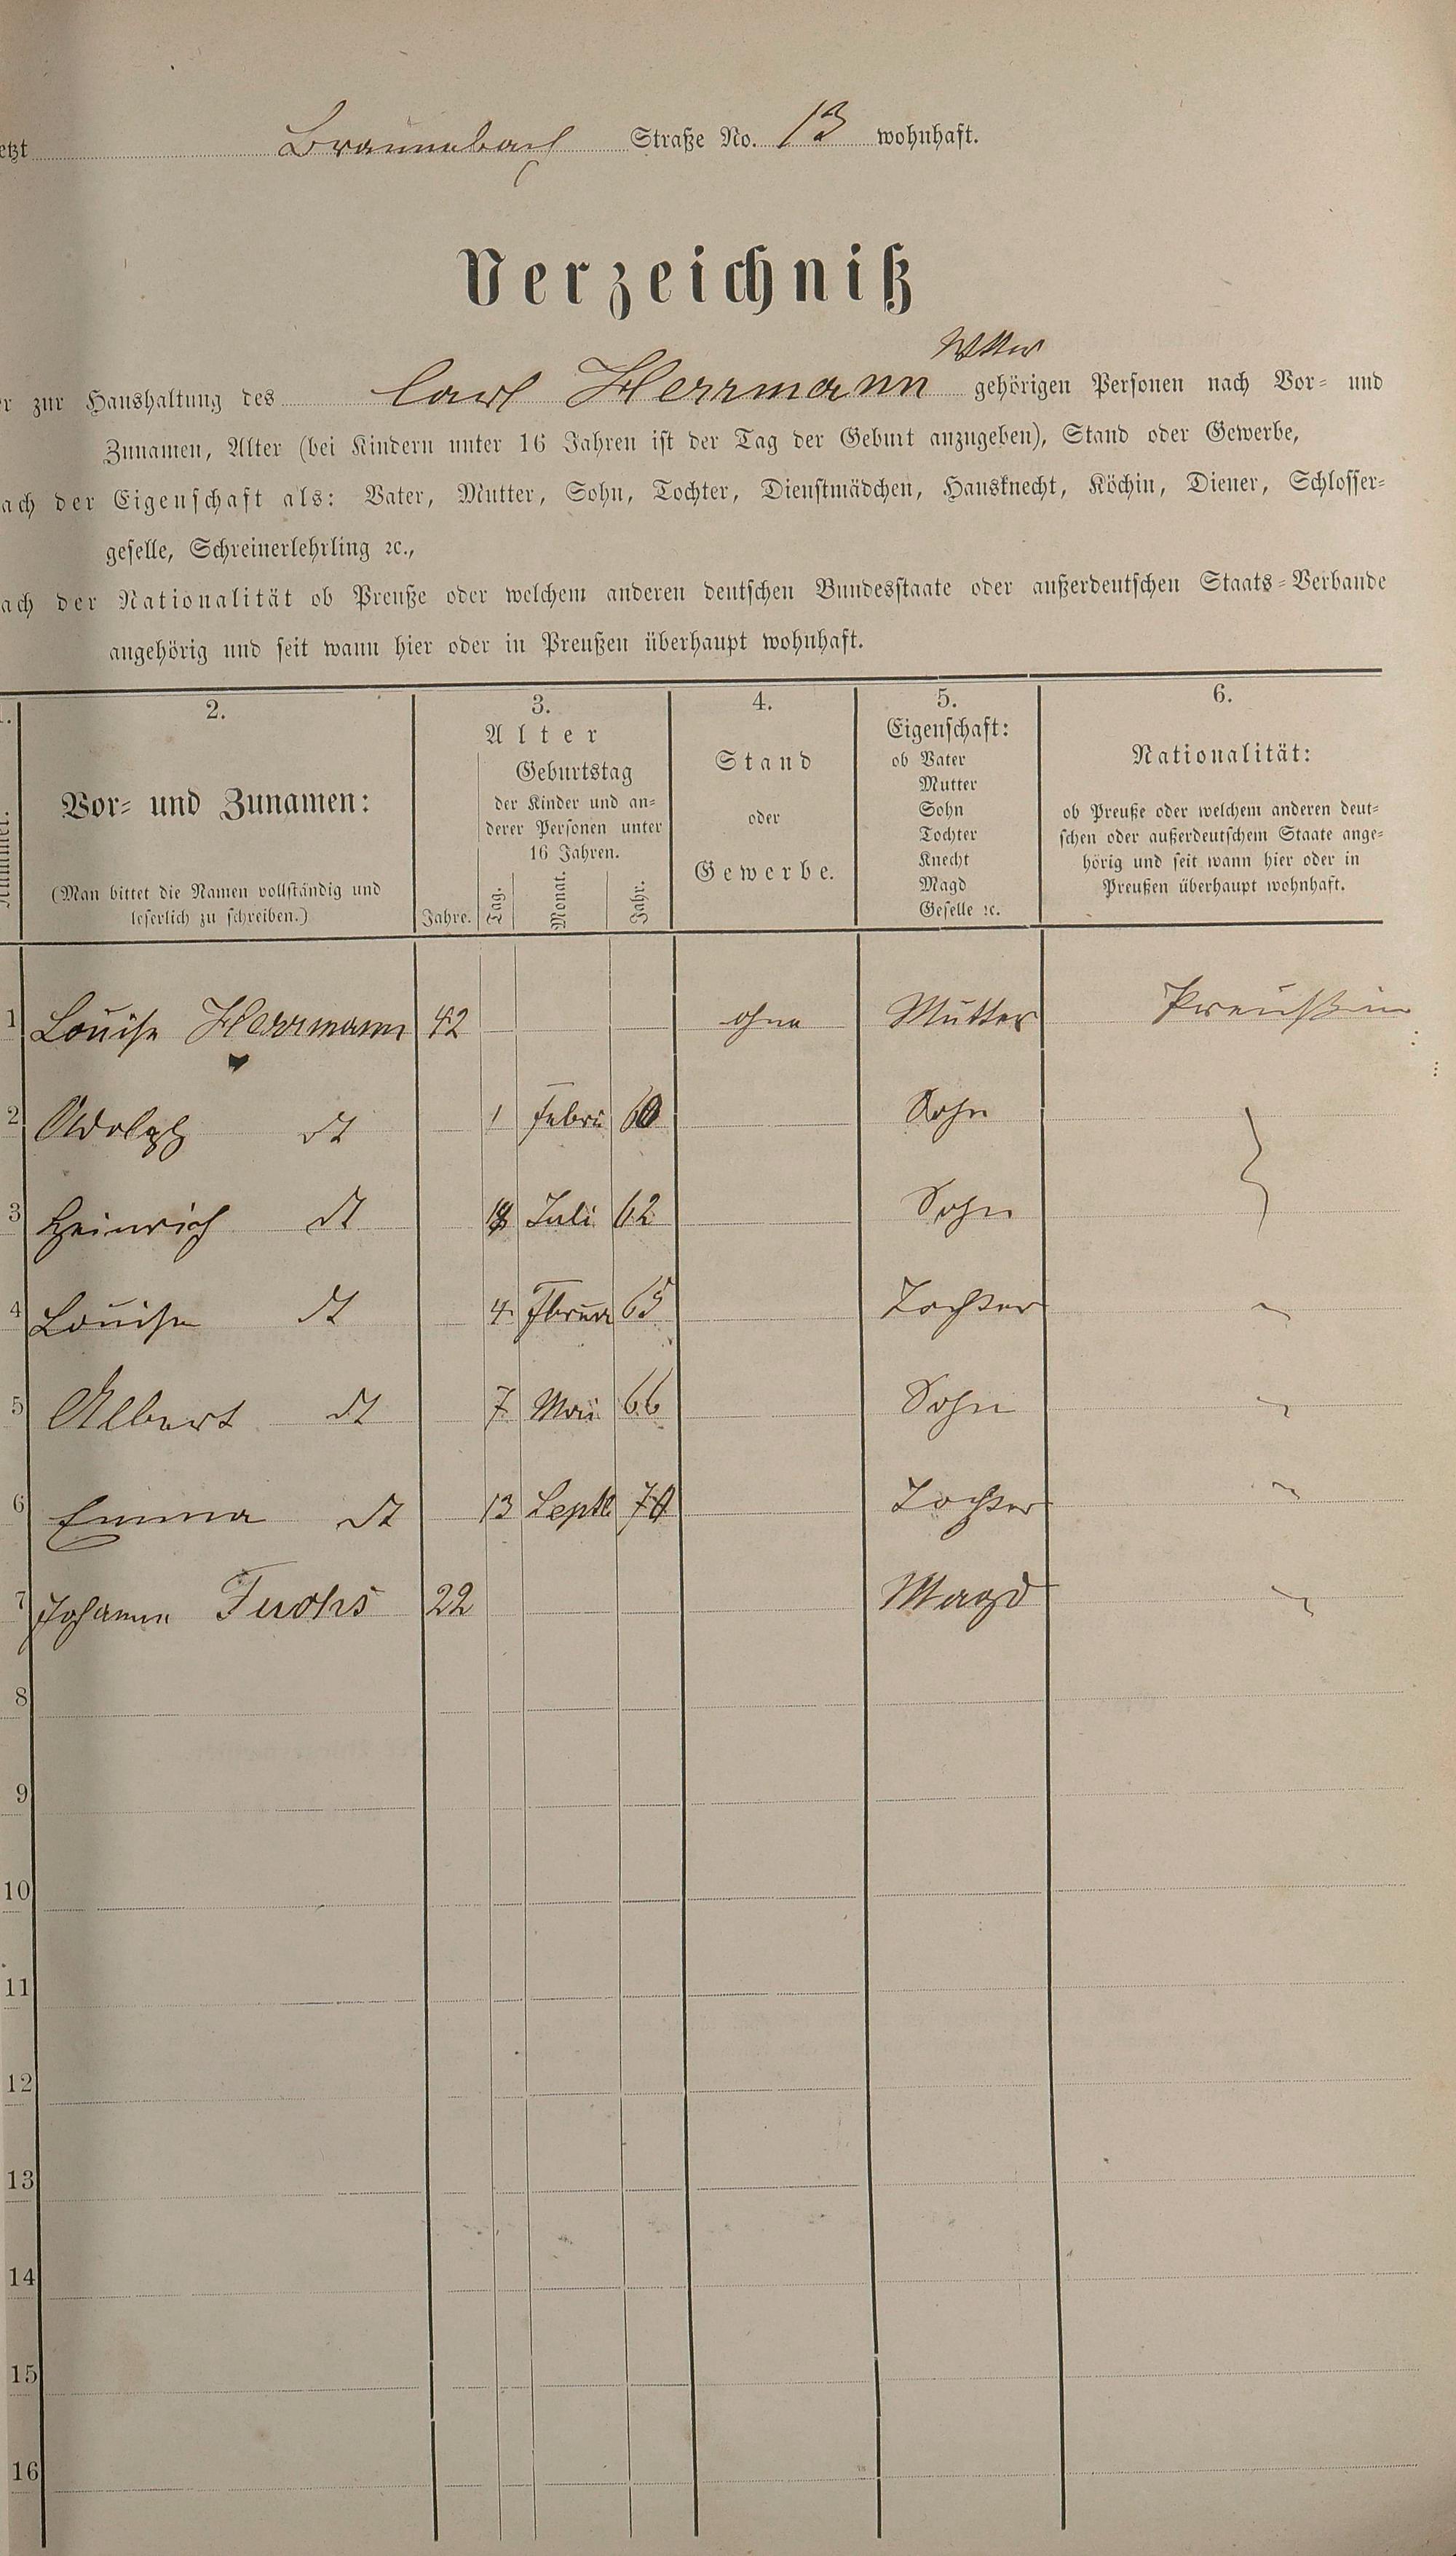 etzt Braunnbach Straße No. 13 wohnhaft.
Verzeichniß
Wttw
r zur Haushaltung des Carl Herrmann gehörigen Personen nach Vor- und
Zunamen, Alter (bei Kindern unter 16 Jahren ist der Tag der Geburt anzugeben), Stand oder Gewerbe,
ach der Eigenschaft als: Vater, Mutter, Sohn, Tochter, Dienstmädchen, Hausknecht, Köchin, Diener, Schlosser-
geselle, Schreinerlehrling ꝛc.,
ach der Nationalität ob Preuße oder welchem anderen deutschen Bundesstaate oder außerdeutschen Staats-Verbande
angehörig und seit wann hier oder in Preußen überhaupt wohnhaft.
1. 2. 3. 4. 5. 6.
Nummer.
Vor- und Zunamen:
(Man bittet die Namen vollständig und
leserlich zu schreiben.)
Alter
Geburtstag
der Kinder und an-
derer Personen unter
16 Jahren.
Jahre. Tag. Monat. Jahr.
Stand
oder
Gewerbe.
Eigenschaft:
ob Vater
Mutter
Sohn
Tochter
Knecht
Magd
Geselle ꝛc.
Nationalität:
ob Preuße oder welchem anderen deut-
schen oder außerdeutschem Staate ange-
hörig und seit wann hier oder in
Preußen überhaupt wohnhaft.
1 Louise Herrmann 42 ohne Mutter Preußin
2 Adolph dt 1 Febru 60 Sohn
3 Heinrich dt 18 Juli 62 Sohn
4 Louise dt 4 Fbrua 65 Tochter "
5 Albert dt 7 Mai 66 Sohn "
6 Emma dt 13 Septb 70 Tochter "
7 Johanna Fuchs 22 Magd "
8
9
10
11
12
13
14
15
16